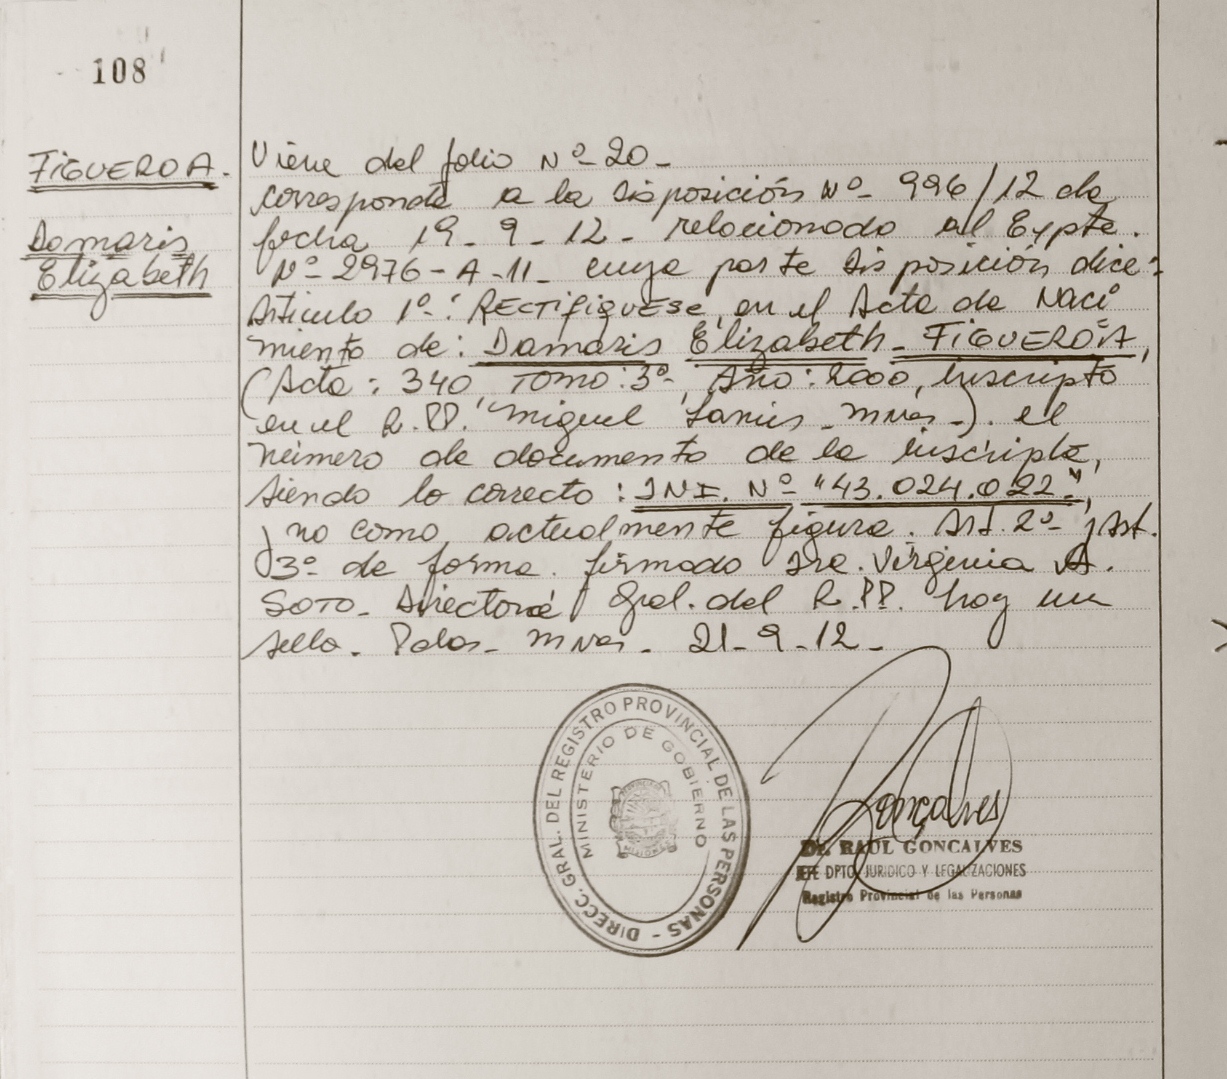 108
FIGUEROA.
Damaris
Elizabeth
Viene del folio Nº 20_
corresponde a la disposición Nº 996/12 de
fecha 19_9_12_ relacionado al Expte.
Nº 2976-A-11_ cuya parte disposición dice:
Articulo 1º: RECTIFIQUESE, en el Acta de Naci
miento de: Damaris Elizabeth_ FIGUEROA,
(Acta: 340, TOMO: 3º, Año: 2000, inscripta
en el R.PP. Miguel Lanús_ Mnes_). el
número de documento de la inscripta,
siendo lo correcto: D.N.I. Nº "43.024.022",
y no como actualmente figura. Art. 2º y Art.
3º de forma. firmado Dra. Virginia A.
SOTO_ Directora Gral. del R.PP. hay un
sello_ Pdas_ Mnes_ 21_9_12_
DIRECC. GRAL. DEL REGISTRO PROVINCIAL DE LAS PERSONAS -
MINISTERIO DE GOBIERNO
MISIONES
Gonçalves
Dr. RAUL GONCALVES
JEFE DPTO. JURIDICO Y LEGALIZACIONES
Registro Provincial de las Personas